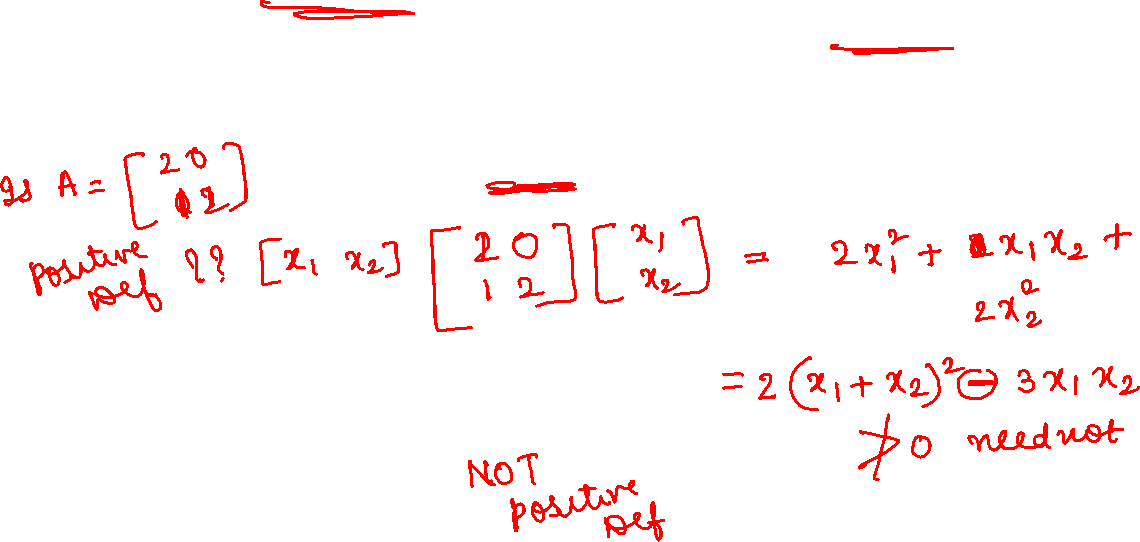 Is A = [2 0
1 2]
Positive Def ?? [x₁ x₂] [2 0
1 2] [x₁
x₂] = 2x₁² + x₁x₂ +
2x₂²
= 2(x₁ + x₂)² - 3x₁x₂
≯ 0 need not
NOT
positive
Def